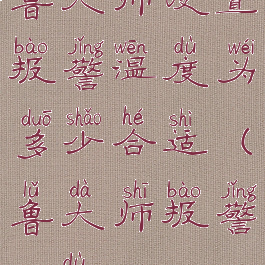 鲁大师设置
bào jǐng wēn dù wéi
报警温度为
duō shǎo hé shì
多少合适（
lǔ dà shī bào jǐng
鲁大师报警
dù